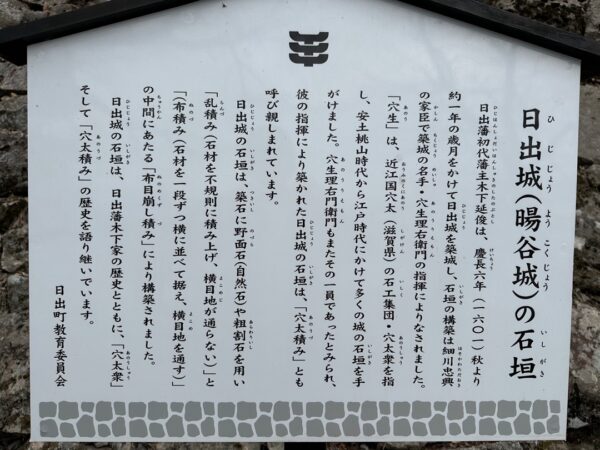 日出城(暘谷城)の石垣
日出藩初代藩主木下延俊は、慶長六年(一六〇一)秋より
約一年の歳月をかけて日出城を築城し、石垣の構築は細川忠興
の家臣で築城の名手・穴生理右衛門の指揮によりなされました。
「穴生」は、近江国穴太(滋賀県)の石工集団・穴太衆を指
し、安土桃山時代から江戸時代にかけて多くの城の石垣を手
がけました。穴生理右門衛門もまたその一員であったとみられ、
彼の指揮により築かれた日出城の石垣は、「穴太積み」とも
呼び親しまれています。
日出城の石垣は、築石に野面石(自然石)や粗割石を用い
「乱積み(石材を不規則に積み上げ、横目地が通らない)」と
「(布積み(石材を一段ずつ横に並べて据え、横目地を通す)」
の中間にあたる「布目崩し積み」により構築されました。
日出城の石垣は、日出藩木下家の歴史とともに、「穴太衆」
そして「穴太積み」の歴史を語り継いでいます。
日出町教育委員会